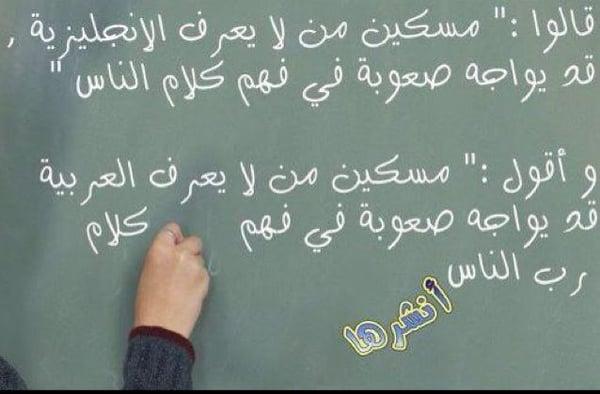 قالوا :" مسكين من لا يعرف الإنجليزية ,
قد يواجه صعوبة في فهم كلام الناس "
و أقول :" مسكين من لا يعرف العربية
قد يواجه صعوبة في فهم كلام
رب الناس
أنشرها